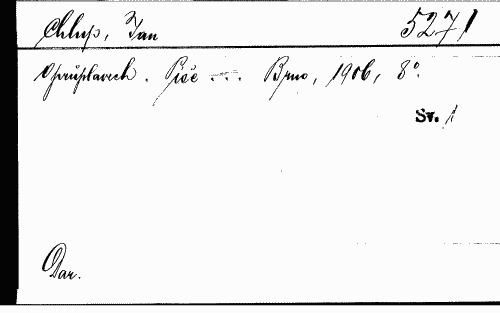 Chlup, Jan 5271
O průplavech. Píše ... Brno, 1906, 8°.
Sv. 1
Dar.